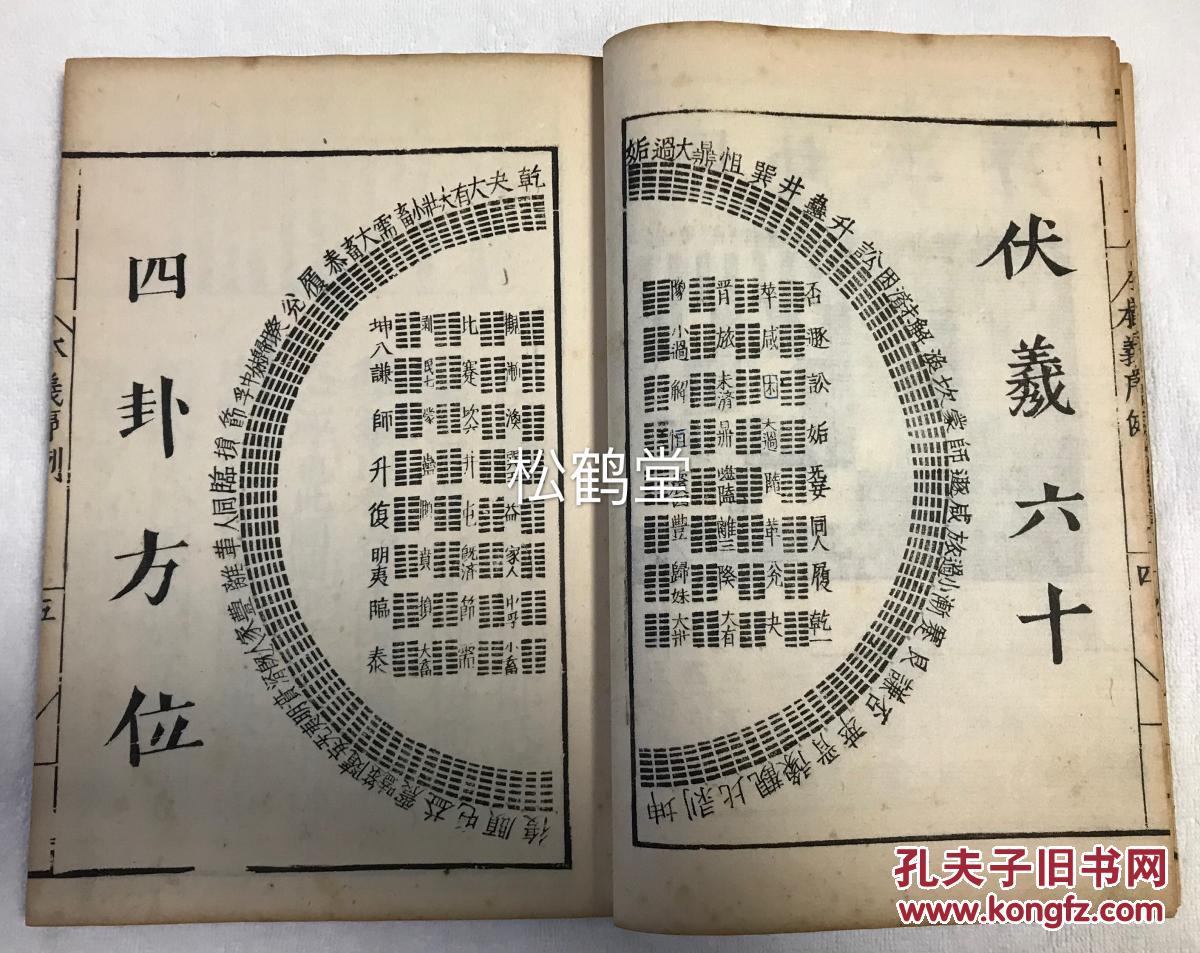 伏羲六十
四卦方位
姤 大過 鼎 恒 巽 井 蠱 升 訟 困 解 渙 坎 蒙 師 遯 咸 旅 小過 漸 蹇 艮 謙 否 萃 晉 豫 觀 比 剥 坤
乾 夬 大有 大壯 小畜 需 大畜 泰 履 兌 中孚 節 損 臨 同人 革 離 豐 家人 隨 噬嗑 震 益 屯 頤 復
否 萃 晉 豫 觀 比 剥 坤八
遯 咸 旅 小過 漸 蹇 艮七 謙
訟 困 未濟 解 渙 坎 蒙 師
姤 大過 鼎 恒 井 蠱 升
无妄 隨 噬嗑 益 屯 頤 復
同人 革 離三 豐 家人 既濟 賁 明夷
履 兌 睽 歸妹 中孚 節 損 臨
乾一 夬 大有 大壯 小畜 需 大畜 泰
五
松鹤堂
孔夫子旧书网
www.kongfz.com